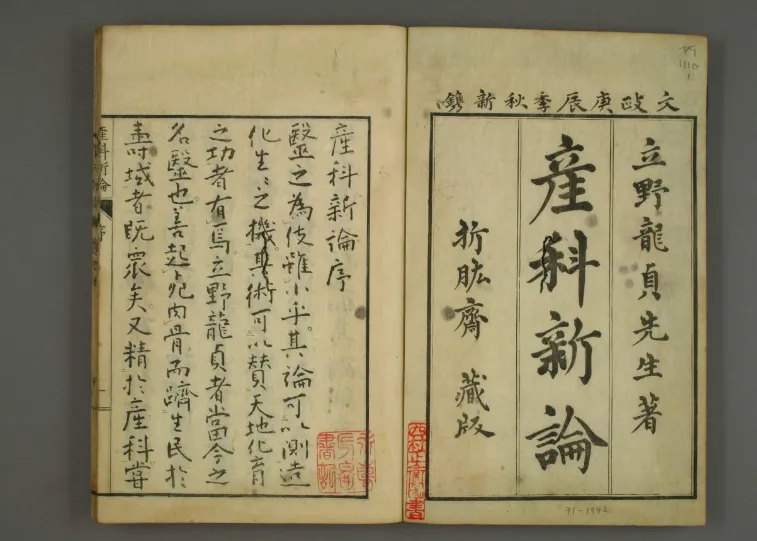 文政庚辰季秋新鐫
立野龍貞先生著
産科新論
折肱齋 藏版
産科新論序
醫之為伎雖小乎其論可以測造
化生々之機其術可以贊天地化育
之功者有焉立野龍貞者當今之
名醫也善起死肉骨而躋生民於
壽域者既衆矣又精於産科嘗
産科新論
序
91-1942